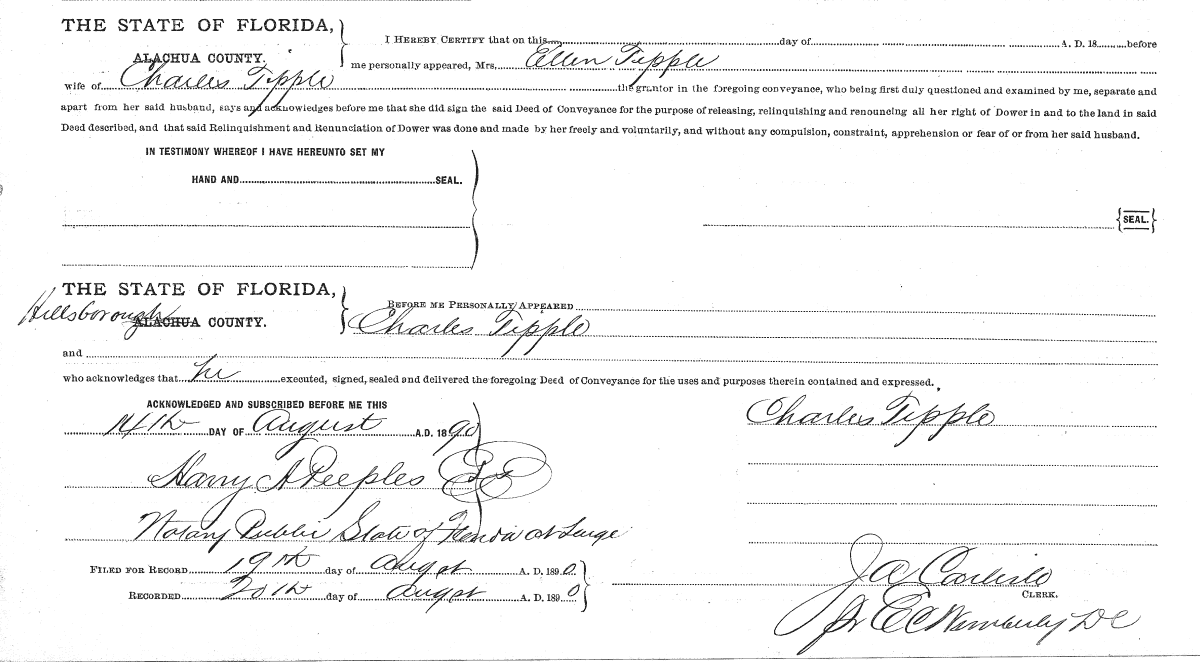 THE STATE OF FLORIDA,
ALACHUA COUNTY.
I HEREBY CERTIFY that on this day of A. D. 18 before
me personally appeared, Mrs. Ellen Tipple
wife of Charles Tipple the grantor in the foregoing conveyance, who being first duly questioned and examined by me, separate and
apart from her said husband, says and acknowledges before me that she did sign the said Deed of Conveyance for the purpose of releasing, relinquishing and renouncing all her right of Dower in and to the land in said
Deed described, and that said Relinquishment and Renunciation of Dower was done and made by her freely and voluntarily, and without any compulsion, constraint, apprehension or fear of or from her said husband.
IN TESTIMONY WHEREOF I HAVE HEREUNTO SET MY
HAND AND SEAL.
{SEAL.}
THE STATE OF FLORIDA,
Hillsborough ALACHUA COUNTY.
BEFORE ME PERSONALLY APPEARED
Charles Tipple
and
who acknowledges that he executed, signed, sealed and delivered the foregoing Deed of Conveyance for the uses and purposes therein contained and expressed.
ACKNOWLEDGED AND SUBSCRIBED BEFORE ME THIS
14th DAY OF August A.D. 1890
Charles Tipple
Harry A Peeples
Notary Public State of Florida at Large
FILED FOR RECORD 19th day of August A. D. 1890
RECORDED 20th day of August A. D. 1890
J A Carlisle
CLERK.
pr E C Wimberly DC